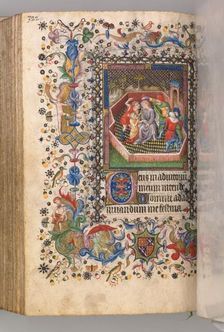 Deus in adiutori
um meum intend
Domine ad ad
iuuandum me festina